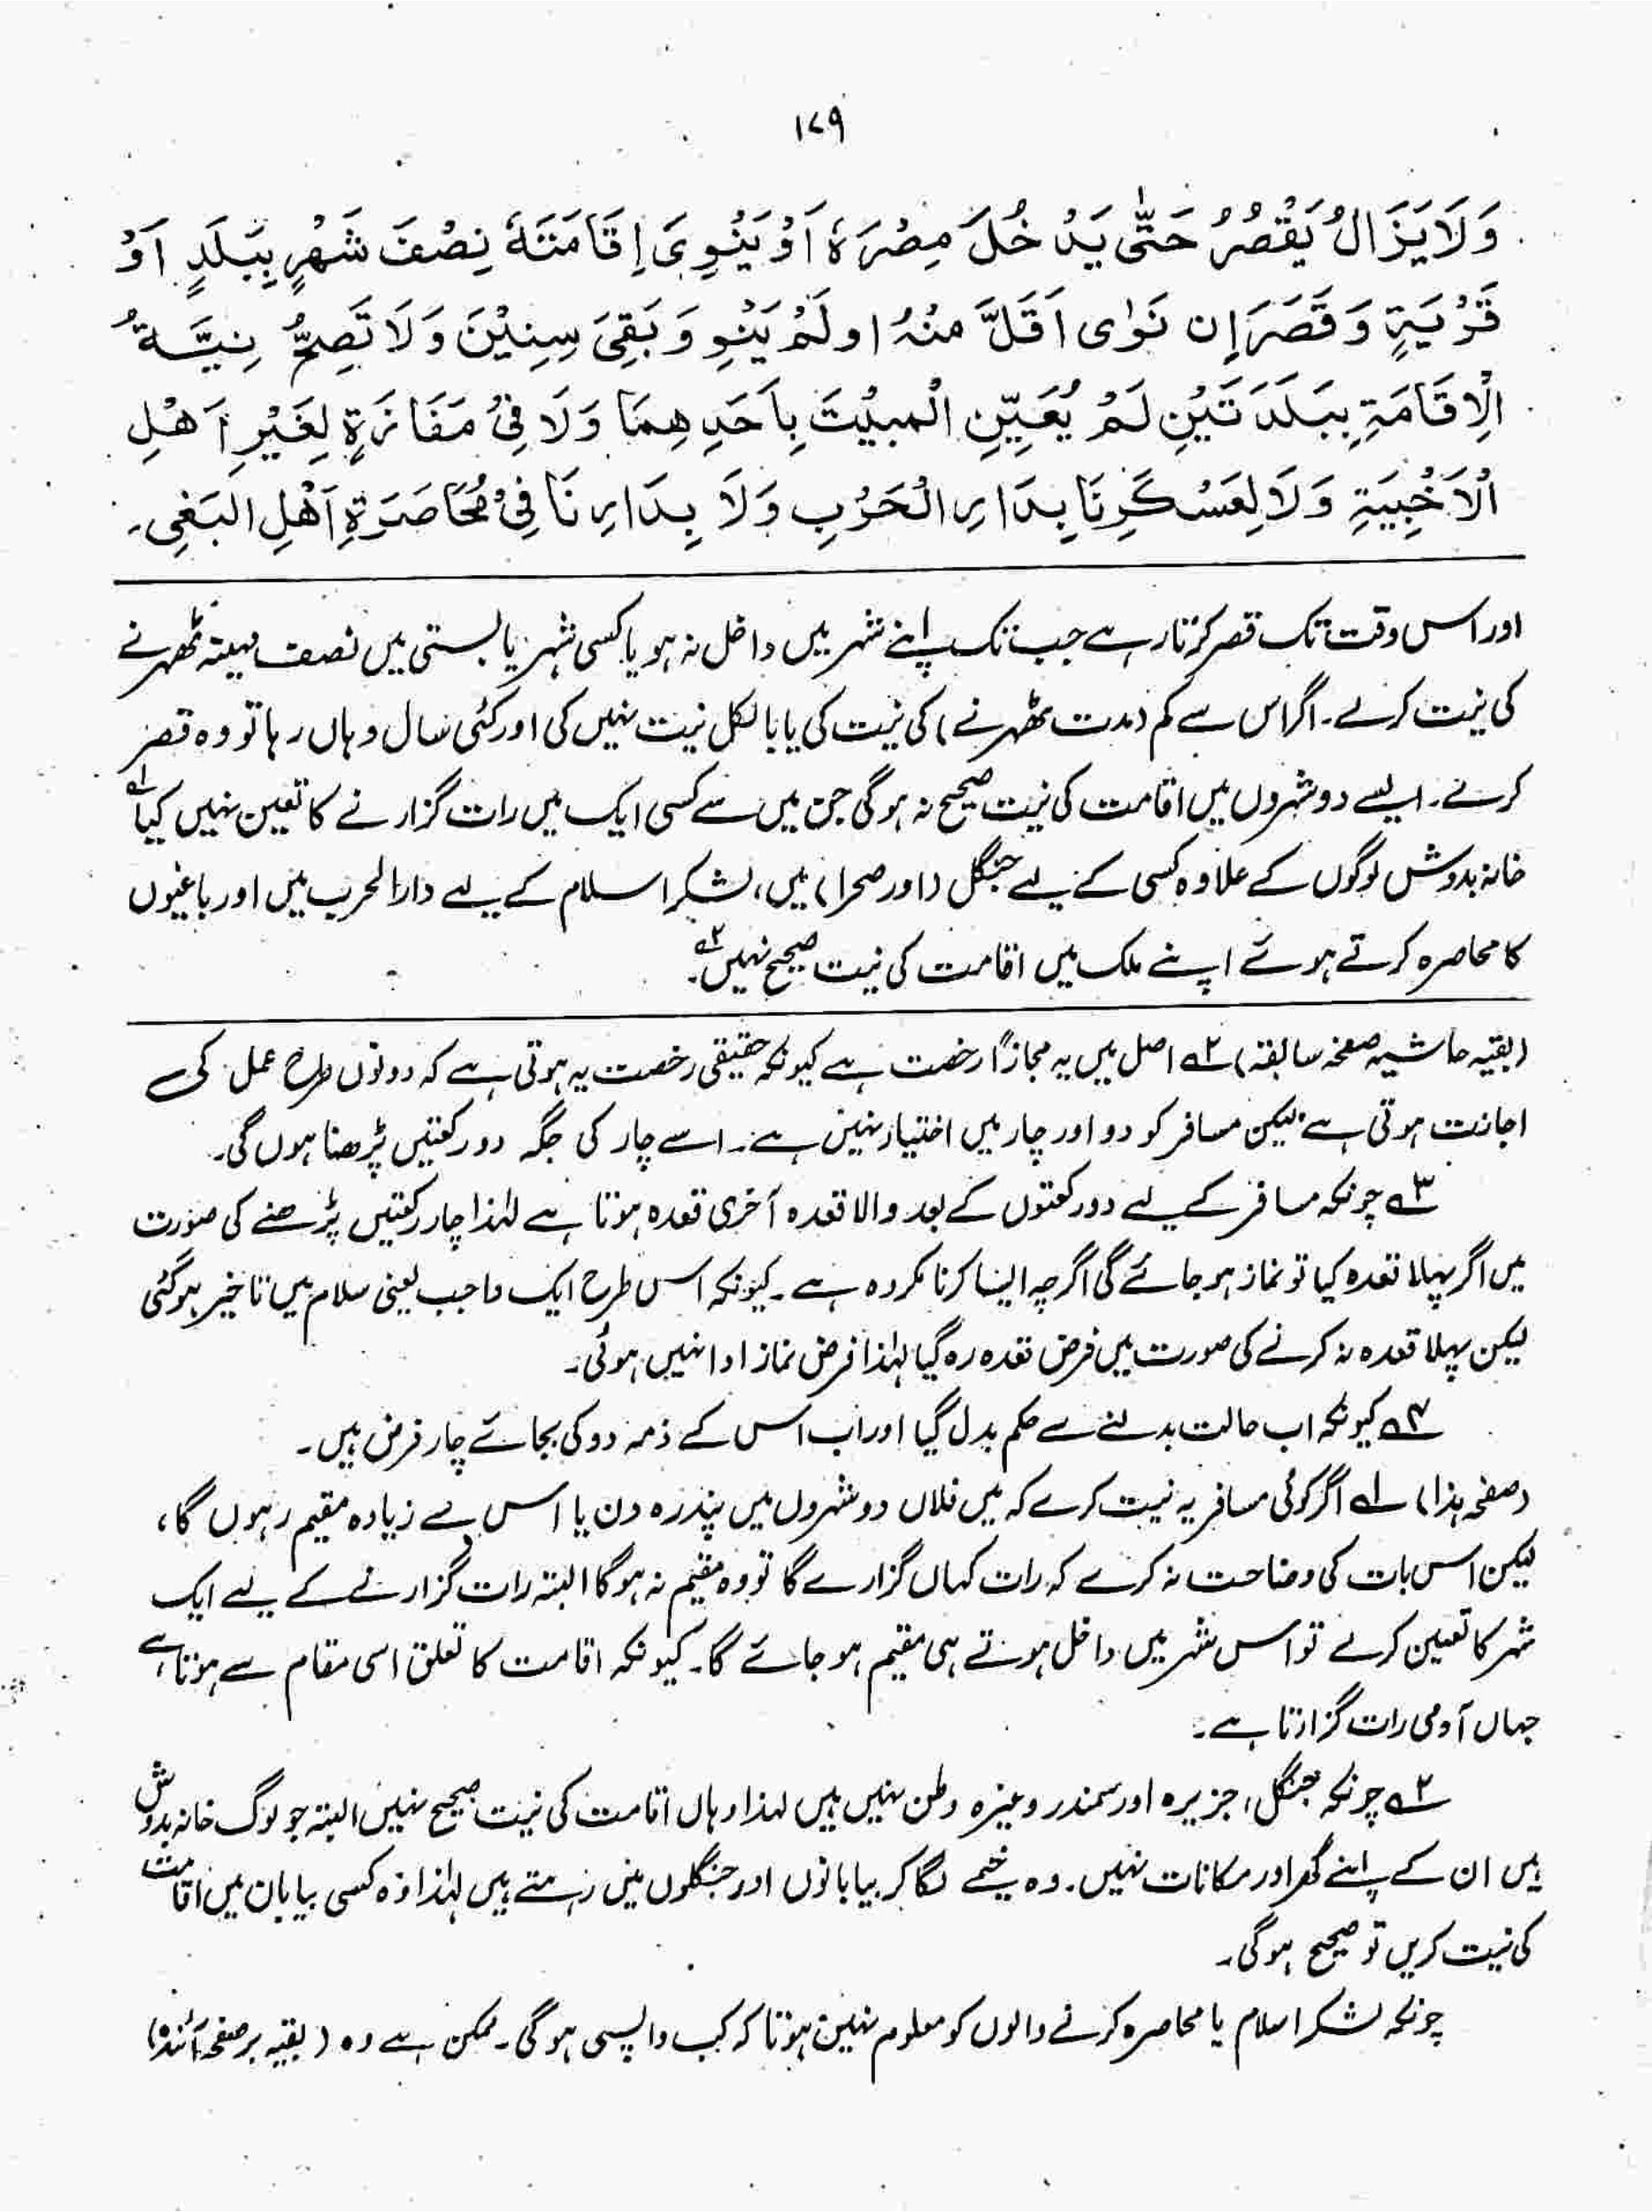 ۱۷۹
وَلَا يَزَالُ يَقْصُرُ حَتّٰى يَدْخُلَ مِصْرَهٗ اَوْ يَنْوِىَ اِقَامَتَهٗ نِصْفَ شَهْرٍ بِبَلَدٍ اَوْ
قَرْيَةٍ وَقَصَرَ اِن نَوٰى اَقَلَّ مِنْهُ او لَمْ يَنْوِ وَبَقِىَ سِنِيْنَ وَلَا تَصِحُّ نِيَّةُ
الْاِقَامَةِ بِبَلَدَتَيْنِ لَمْ يُعَيِّنِ الْمبيْتَ بِاَحَدِهِمَا وَلَا فِىْ مَفَازَةٍ لِغَيْرِ اَهْلِ
الْاَخْبِيَةِ وَلَا لِعَسْكَرِنَا بِدَارِ الْحَرْبِ وَلَا بِدَارِنَا فِىْ مُحَاصَرَةِ اَهْلِ البَغِى۔
اور اس وقت تک قصر کرتا رہے جب تک اپنے شہر میں داخل نہ ہو یا کسی شہر یا بستی میں نصف مہینہ ٹھہرنے
کی نیت کرلے۔ اگر اس سے کم (مدت ٹھہرنے) کی نیت کی یا بالکل نیت نہیں کی اور کئی سال وہاں رہا تو وہ قصر
کرے۔ ایسے دو شہروں میں اقامت کی نیت صحیح نہ ہوگی جن میں سے کسی ایک میں رات گزارنے کا تعین نہیں کیا۱؎
خانہ بدوش لوگوں کے علاوہ کسی کے لیے جنگل (اور صحرا) میں، لشکر اسلام کے لیے دارالحرب میں اور باغیوں
کا محاصرہ کرتے ہوئے اپنے ملک میں اقامت کی نیت صحیح نہیں۲؎۔
(بقیہ حاشیہ صفحہ سابقہ) ۲؎ اصل میں یہ مجازاً رخصت ہے کیونکہ حقیقی رخصت یہ ہوتی ہے کہ دونوں طرح عمل کی
اجازت ہوتی ہے لیکن مسافر کو دو اور چار میں اختیار نہیں ہے۔ اسے چار کی جگہ دو رکعتیں پڑھنا ہوں گی۔
۳؎ چونکہ مسافر کے لیے دو رکعتوں کے بعد والا قعدہ آخری قعدہ ہوتا ہے لہٰذا چار رکعتیں پڑھنے کی صورت
میں اگر پہلا قعدہ کیا تو نماز ہو جائے گی اگرچہ ایسا کرنا مکروہ ہے۔ کیونکہ اس طرح ایک واجب یعنی سلام میں تاخیر ہوگئی
لیکن پہلا قعدہ نہ کرنے کی صورت میں فرض قعدہ رہ گیا لہٰذا فرض نماز ادا نہیں ہوئی۔
۴؎ کیونکہ اب حالت بدلنے سے حکم بدل گیا اور اب اس کے ذمہ دو کی بجائے چار فرض ہیں۔
(صفحہ ہذا) ۱؎ اگر کوئی مسافر یہ نیت کرے کہ میں فلاں دو شہروں میں پندرہ دن یا اس سے زیادہ مقیم رہوں گا،
لیکن اس بات کی وضاحت نہ کرے کہ رات کہاں گزارے گا تو وہ مقیم نہ ہوگا البتہ رات گزارنے کے لیے ایک
شہر کا تعین کرلے تو اس شہر میں داخل ہوتے ہی مقیم ہو جائے گا۔ کیونکہ اقامت کا تعلق اسی مقام سے ہوتا ہے
جہاں آدمی رات گزارتا ہے۔
۲؎ چونکہ جنگل، جزیرہ اور سمندر وغیرہ وطن نہیں ہیں لہذا وہاں اقامت کی نیت صحیح نہیں البتہ جو لوگ خانہ بدوش
ہیں ان کے اپنے گھر اور مکانات نہیں۔ وہ خیمے لگا کر بیابانوں اور جنگلوں میں رہتے ہیں لہٰذا وہ کسی بیابان میں اقامت
کی نیت کریں تو صحیح ہوگی۔
چونکہ لشکر اسلام یا محاصرہ کرنے والوں کو معلوم نہیں ہوتا کہ کب واپسی ہوگی۔ ممکن ہے وہ (بقیہ بر صفحہ آئندہ)